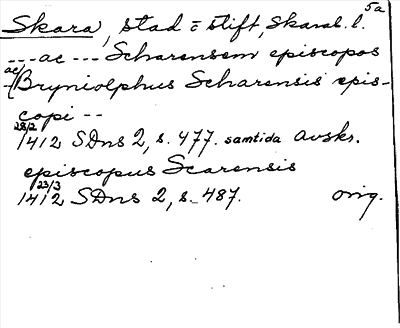 5a
Skara, stad o stift, Skarab. l.
--- ac --- Scharensem episcopos
ac
--(Bryniolphus Scharensis epis-
copi --
28/2
1412 SDns 2, s. 477. samtida avskr.
episcopus Scarensis
23/3
1412 SDns 2, s. 487. orig.